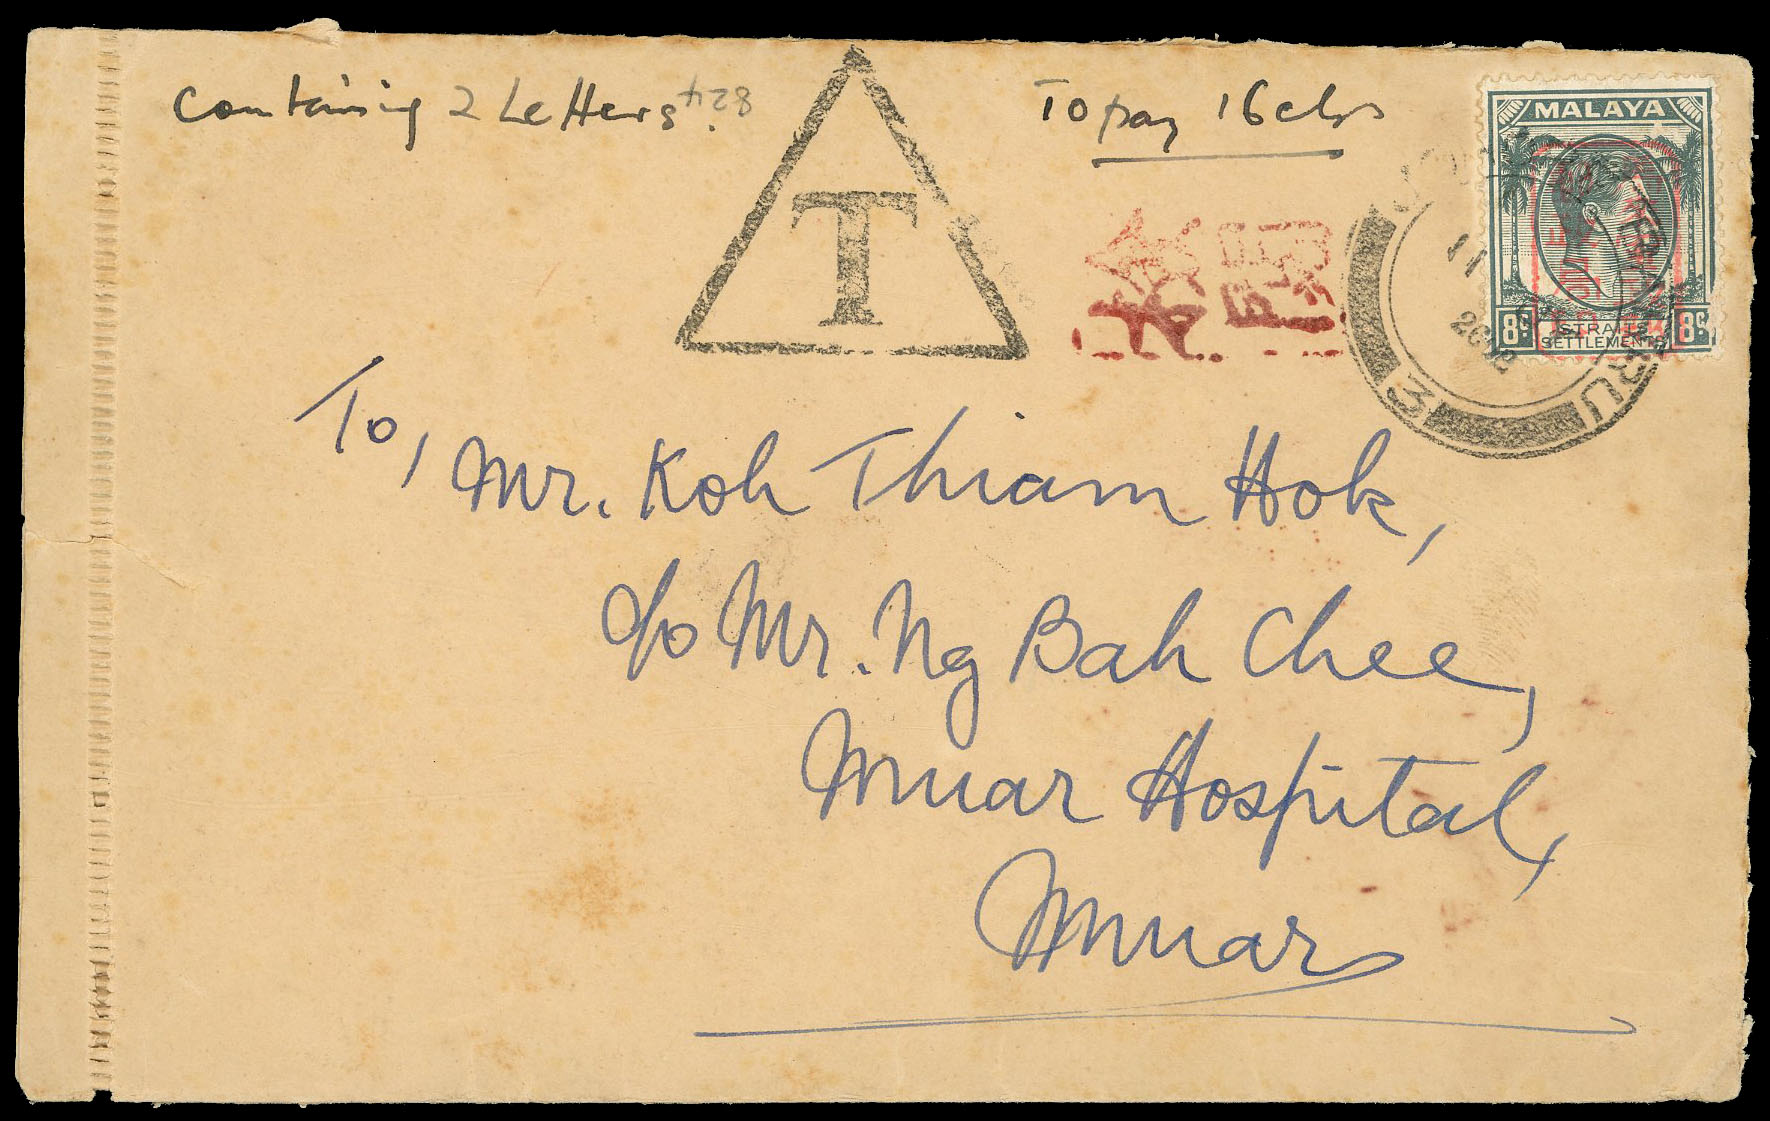 Containing 2 Letters
824
To pay 16 cts
T
MALAYA
8c STRAITS SETTLEMENTS 8c
11
3
To,
Mr. Koh Thiam Hok,
c/o Mr. Ng Bah Chee,
Muar Hospital,
Muar